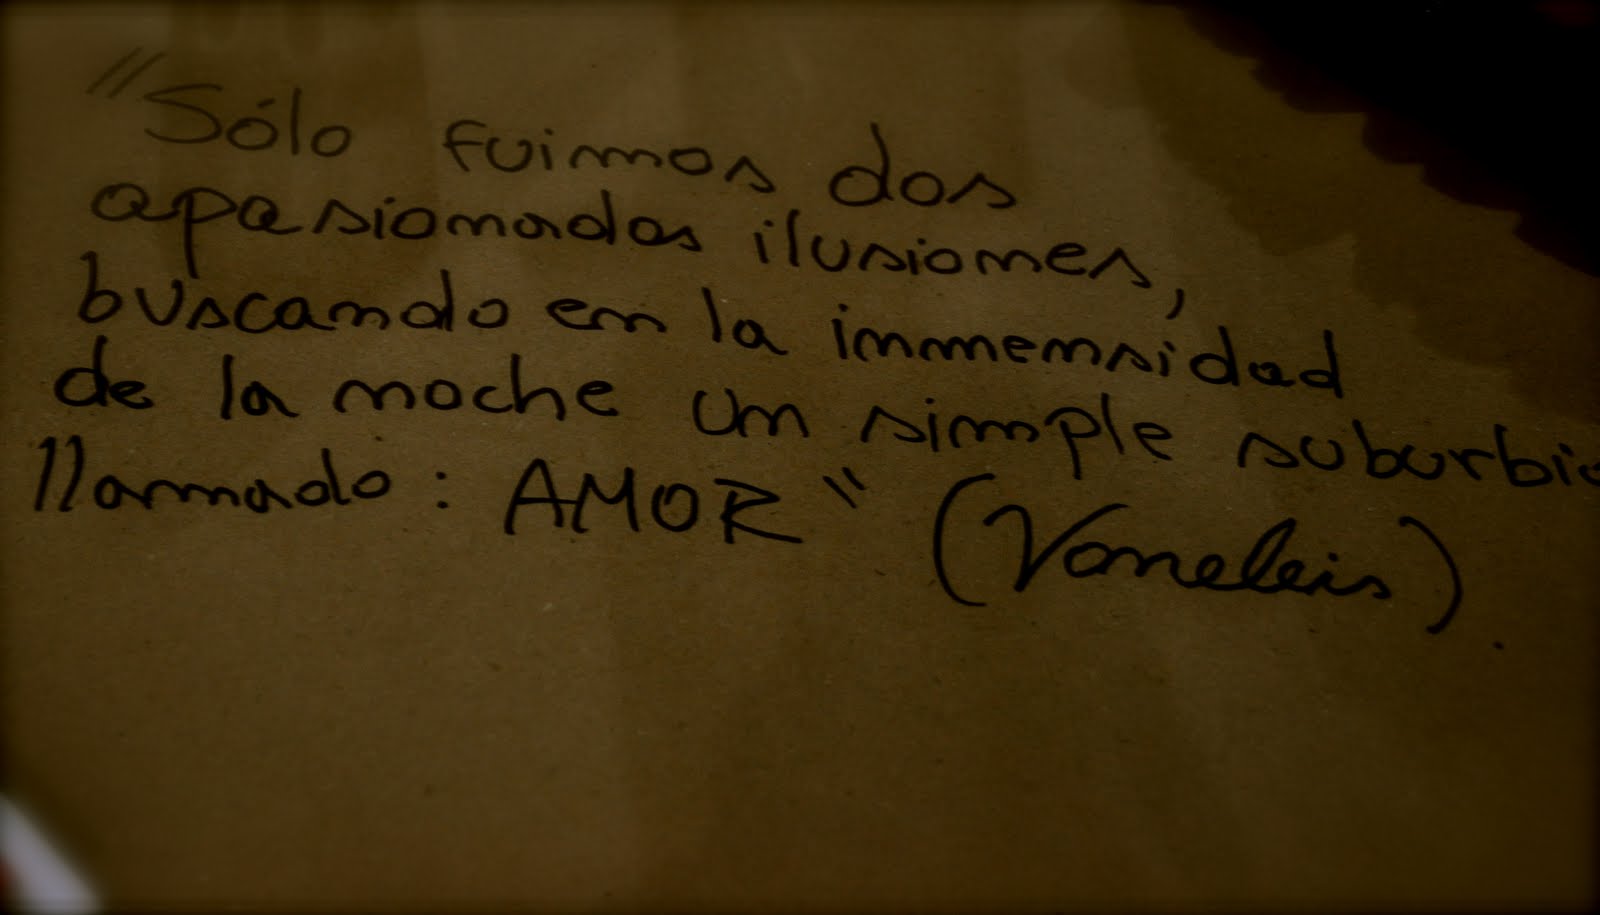 "Sólo fuimos dos
apasionadas ilusiones,
buscando en la inmensidad
de la noche un simple suburbio
llamado: AMOR" (Vaneleis).